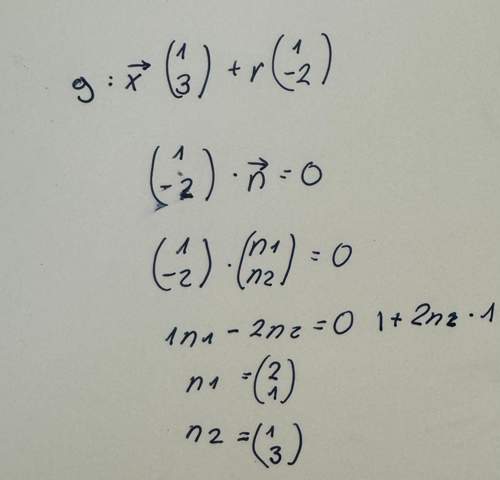 g : x⃗ (1 3) + r (1 -2)
(1 -2) · n⃗ = 0
(1 -2) · (n1 n2) = 0
1n1 - 2n2 = 0 | + 2n2 · 1
n1 = (2 1)
n2 = (1 3)